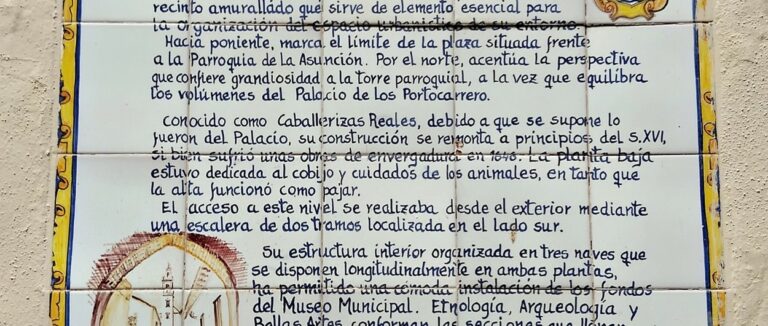 recinto amurallado que sirve de elemento esencial para
la organización del espacio urbanístico de su entorno.
Hacia poniente, marca el límite de la plaza situada frente
a la Parroquia de la Asunción. Por el norte, acentúa la perspectiva
que confiere grandiosidad a la torre parroquial, a la vez que equilibra
los volúmenes del Palacio de los Portocarrero.
Conocido como Caballerizas Reales, debido a que se supone lo
fueron del Palacio, su construcción se remonta a principios del S.XVI,
si bien sufrió unas obras de envergadura en 1648. La planta baja
estuvo dedicada al cobijo y cuidados de los animales, en tanto que
la alta funcionó como pajar.
El acceso a este nivel se realizaba desde el exterior mediante
una escalera de dos tramos localizada en el lado sur.
Su estructura interior organizada en tres naves que
se disponen longitudinalmente en ambas plantas,
ha permitido una cómoda instalación de los fondos
del Museo Municipal. Etnología, Arqueología y
Bellas Artes conforman las secciones que llenan